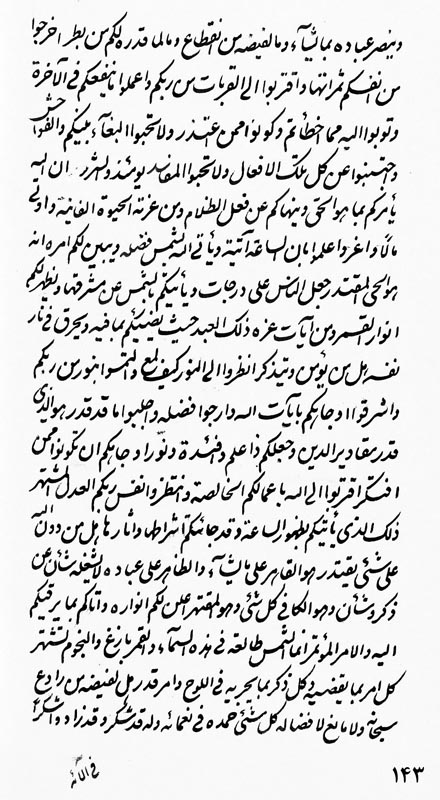 وينصر عباده بما يشآء وما لفيضه من انقطاع وما لما قدره لكم من بطر اخرجوا
من انفسكم ثمراتها واقتربوا الى القربات من ربكم واعملوا ما ينفعكم فى الآخرة
وتوبوا اليه مما اخطأتم وكونوا ممن اعتذر ولا تحبوا البغآء بينكم والفواحش
واجتنبوا عن كل تلك الافعال ولا تحبوا المفاسد يومئذ والشرر ان اليه
يأمركم بما هو الحق وينهاكم عن فعل الظلام ومن غرته الحيوة الفانية واوتى
مالا واغر واعلموا بان الساعة آتية ويأتى الله الشمس فضله ويبين لكم امره انه
هو الحى المقتدر جعل الناس على درجات ويأتيكم بالشمس عن مشرقها ويظهر لكم
انوار القمر ومن آيات عزه ذلك العبد حيث يضيئكم بما فيه ويحرق فى نار
نفسه هل من يؤمن ويتذكر انظروا الى النور كيف لمع والتمسوا بنور من ربكم
واشرقوا وجاءكم بآيات الله وارجوا فضله واطلبوا ما قد قدر هو الذى
قدر مقادير الدين وجعلكم ذا علم وافئدة ونورا وجاءكم ان تكونوا ممن
افتكر اقتربوا الى الله باعمالكم الخالصة وانتظروا انفس ربكم العدل المشتهر
ذلك الذى يأتيكم بظهور الساعة وقد جائتكم اشراطها وآثارها هل من دون الله
على شئى يقتدر هو القاهر على ما يشآء والظاهر على عباده لا يشغله شأن عن
ذكر وشأن وهو الكافى كل شئى وهو المقتهر اعلن لكم انواره واتاكم بما يرقيكم
اليه والامر المؤتمر انما الشمس طالعة فى هذه السمآء والقمر بازغ والنجوم تشتهر
كل امر بما يقضيه وكل ذكر بما يجريه فى اللوح وامر قدر هل لفيضه من رادع
سبحانه ولا مانع لافضاله كل شئى حمده فى نعمائه وله قد شكر وقد زاد واشكر
فى آلائه
١٤٣